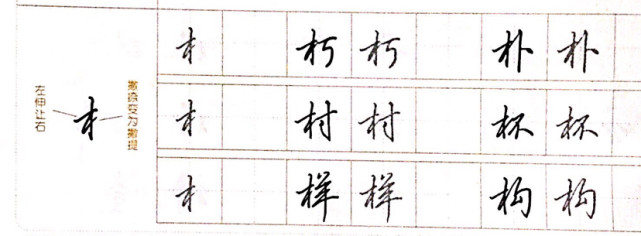 左伸让右
木
撇捺变为撇提
木 朽 朽 朴 朴
木 村 村 杯 杯
木 样 样 构 构